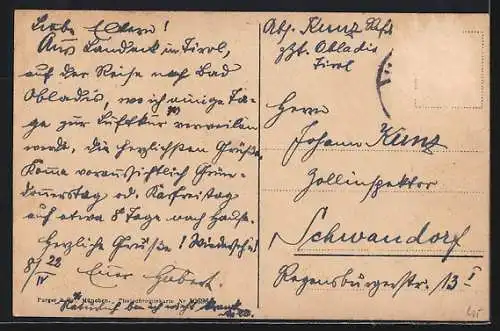 Liebe Eltern!
Aus Landeck in Tirol,
auf der Reise nach Bad
Obladis, wo ich einige Ta-
ge zur Luftkur *) verweilen
werde, die herzlichsten Grüße.
Komme voraussichtlich Grün-
donnerstag od. Karfreitag
auf etwa 8 Tage nach Hause.
Herzliche Grüße! Wiedersehn!
8/IV 28 Euer Hubert.
*) Natürlich bin ich nicht krank
Abs. Kunz
zzt. Obladis
Tirol
Herrn
Johann Kunz
Zollinspektor
Schwandorf
Regensburgerstr. 13 I
Purger & Co., München. Photochromiekarte Nr.